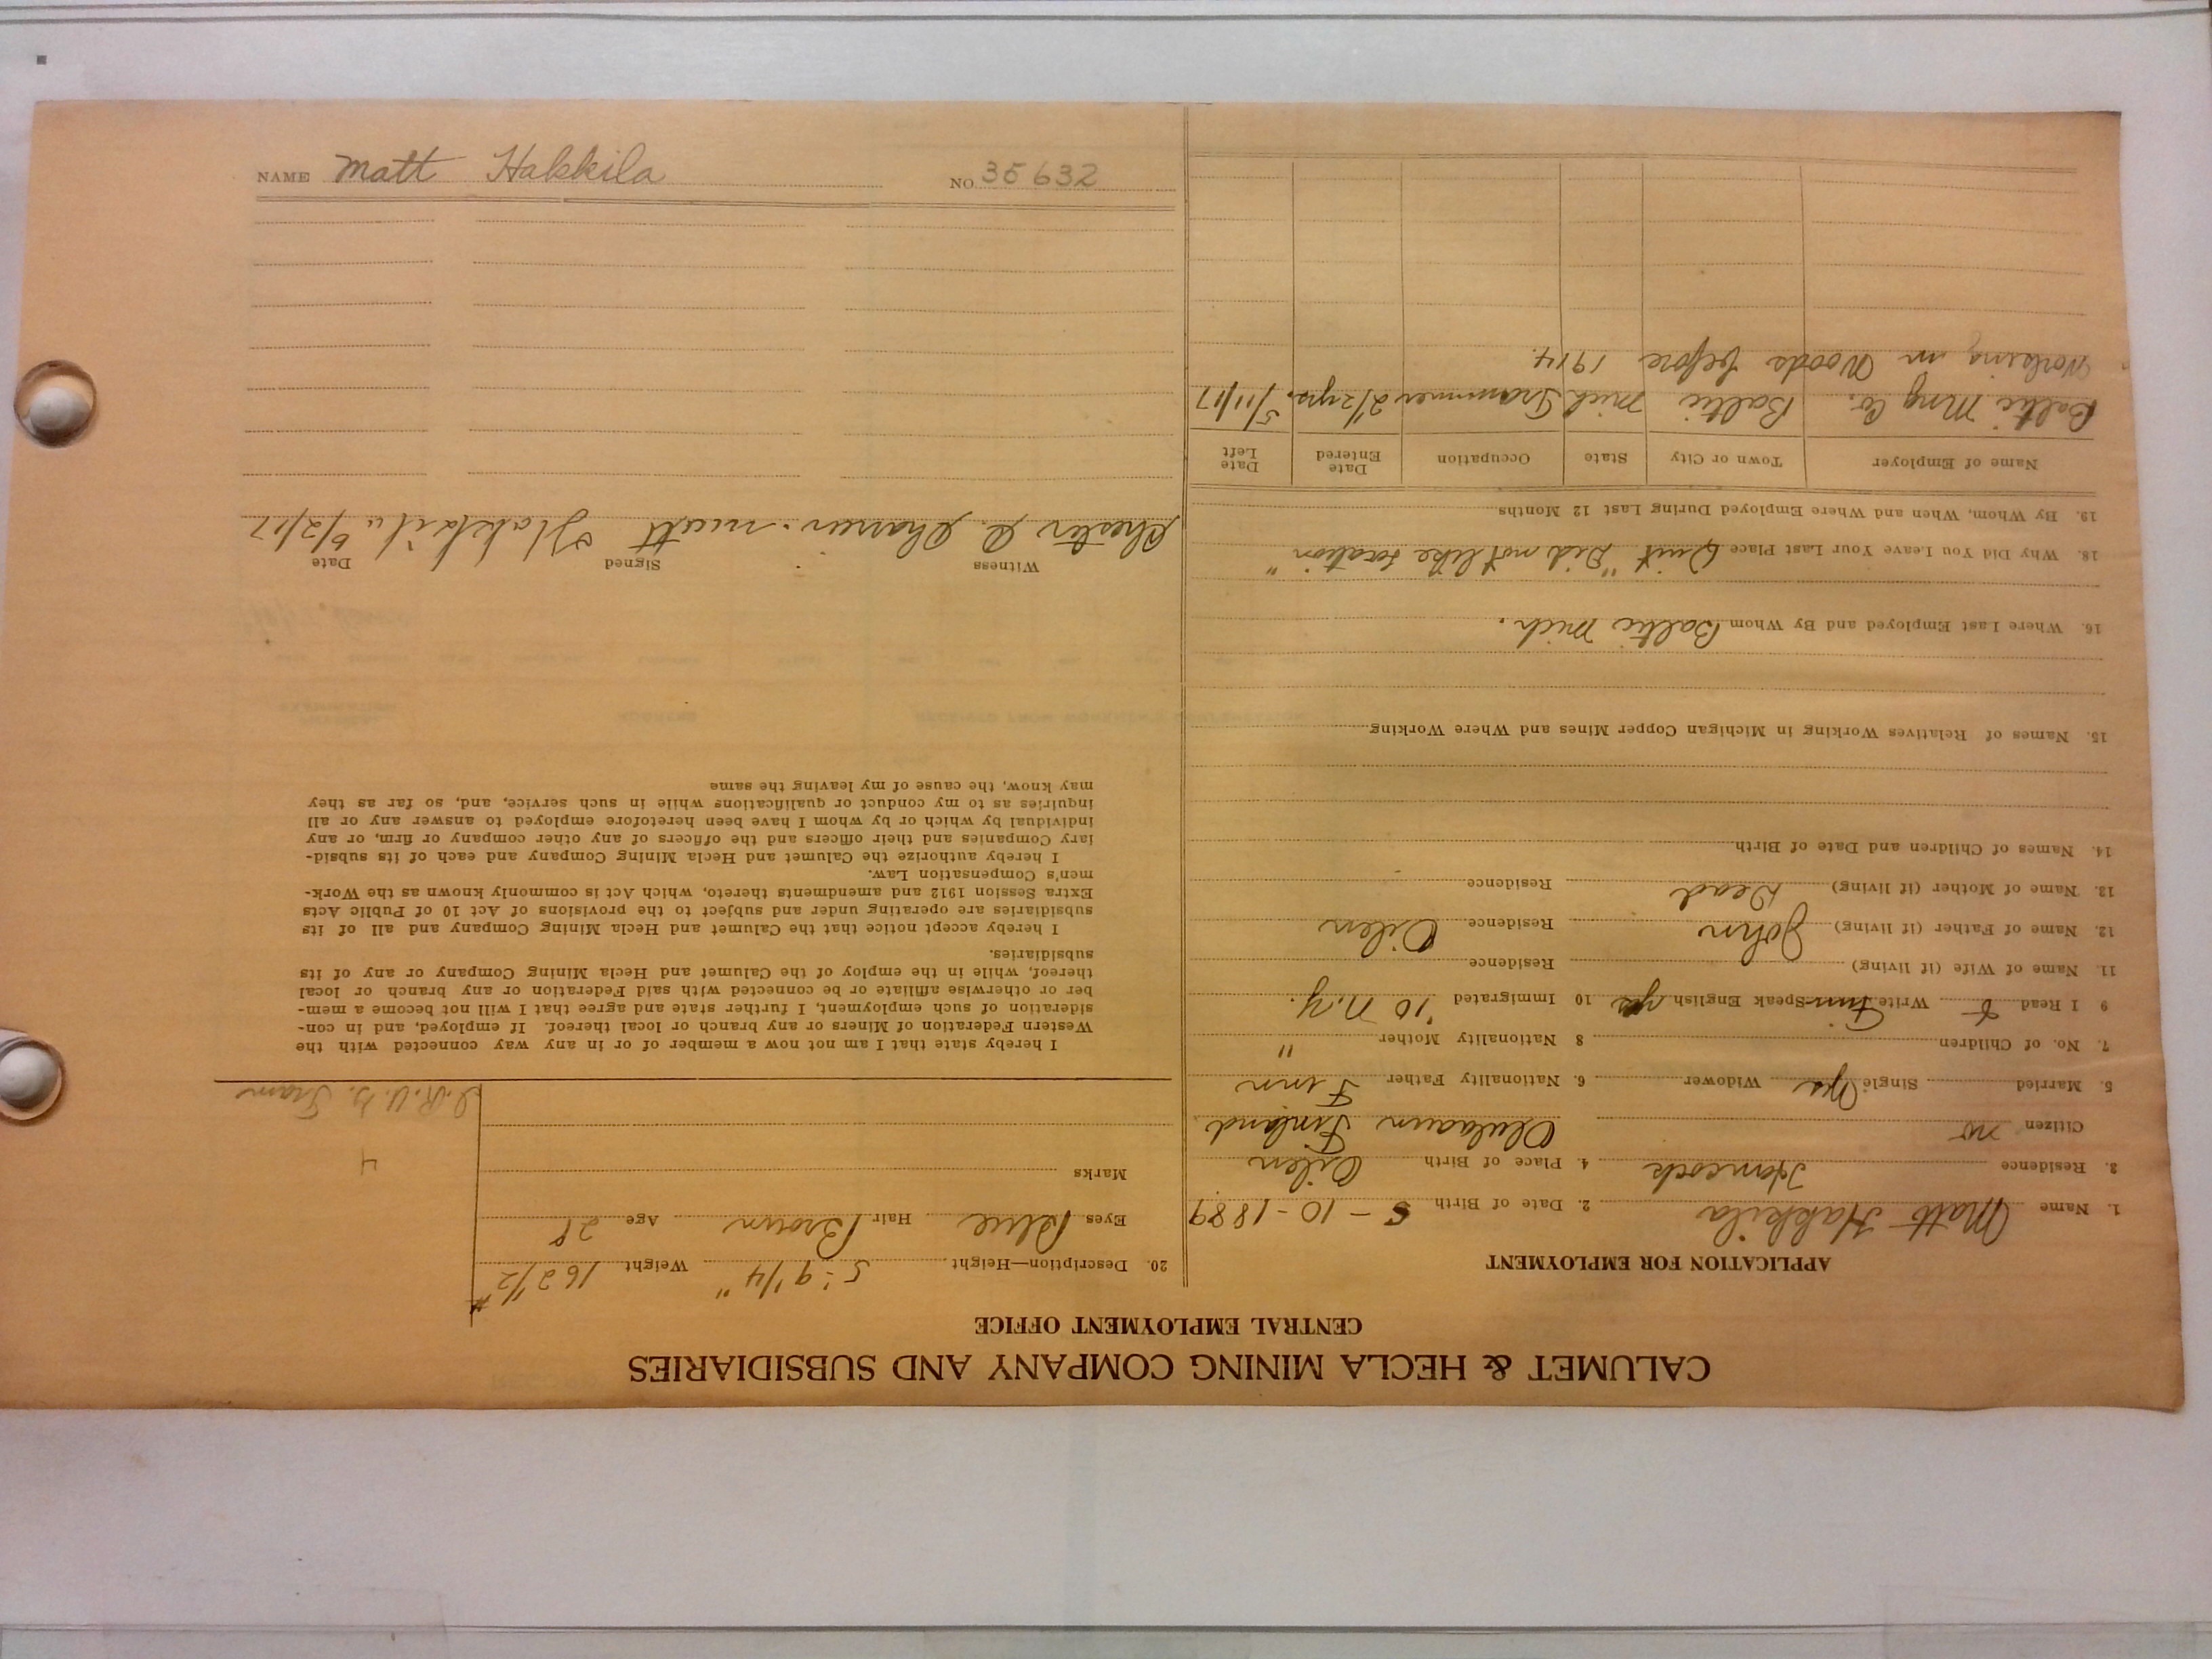 CALUMET & HECLA MINING COMPANY AND SUBSIDIARIES
CENTRAL EMPLOYMENT OFFICE
APPLICATION FOR EMPLOYMENT
1. Name Matt Hakkila 2. Date of Birth 5-10-1889
3. Residence Hancock 4. Place of Birth Oilen
Citizen no Finland
5. Married Single Yes Widower 6. Nationality Father Finn
7. No. of Children 8 Nationality Mother "
9 I Read & Write Finn Speak English yes 10 Immigrated '10 N.Y.
11. Name of Wife (if living) Residence
12. Name of Father (if living) John Residence Oilen
13. Name of Mother (if living) Dead Residence
14. Names of Children and Date of Birth
15. Names of Relatives Working in Michigan Copper Mines and Where Working
16. Where Last Employed and By Whom Baltic Mich.
18. Why Did You Leave Your Last Place Quit "Did not like location"
19. By Whom, When and Where Employed During Last 12 Months
Name of Employer Town or City State Occupation Date Entered Date Left
Baltic Mng Co. Baltic Mich Trammer 2 1/2 yrs. 5/11/17
Working in Woods before 1914.
20. Description—Height 5-9 1/4" Weight 162 1/2 #
Eyes Blue Hair Brown Age 28
Marks
4
Tram
I hereby state that I am not now a member of or in any way connected with the
Western Federation of Miners or any branch or local thereof. If employed, and in con-
sideration of such employment, I further state and agree that I will not become a mem-
ber or otherwise affiliate or be connected with said Federation or any branch or local
thereof, while in the employ of the Calumet and Hecla Mining Company or any of its
subsidiaries.
I hereby accept notice that the Calumet and Hecla Mining Company and all of its
subsidiaries are operating under and subject to the provisions of Act 10 of Public Acts
Extra Session 1912 and amendments thereto, which Act is commonly known as the Work-
men's Compensation Law.
I hereby authorize the Calumet and Hecla Mining Company and each of its subsid-
iary Companies and their officers and the officers of any other company or firm, or any
individual by which or by whom I have been heretofore employed to answer any or all
inquiries as to my conduct or qualifications while in such service, and, so far as they
may know, the cause of my leaving the same
Witness Signed Date
Chester matt Hakkila
NAME Matt Hakkila NO. 35632